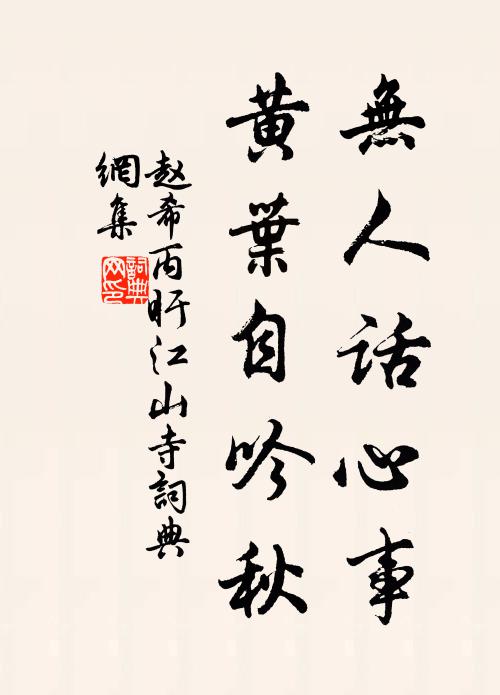 無人話心事
黃葉自吟秋
赵希丙盱江山寺詞典
網集
詞典
网印